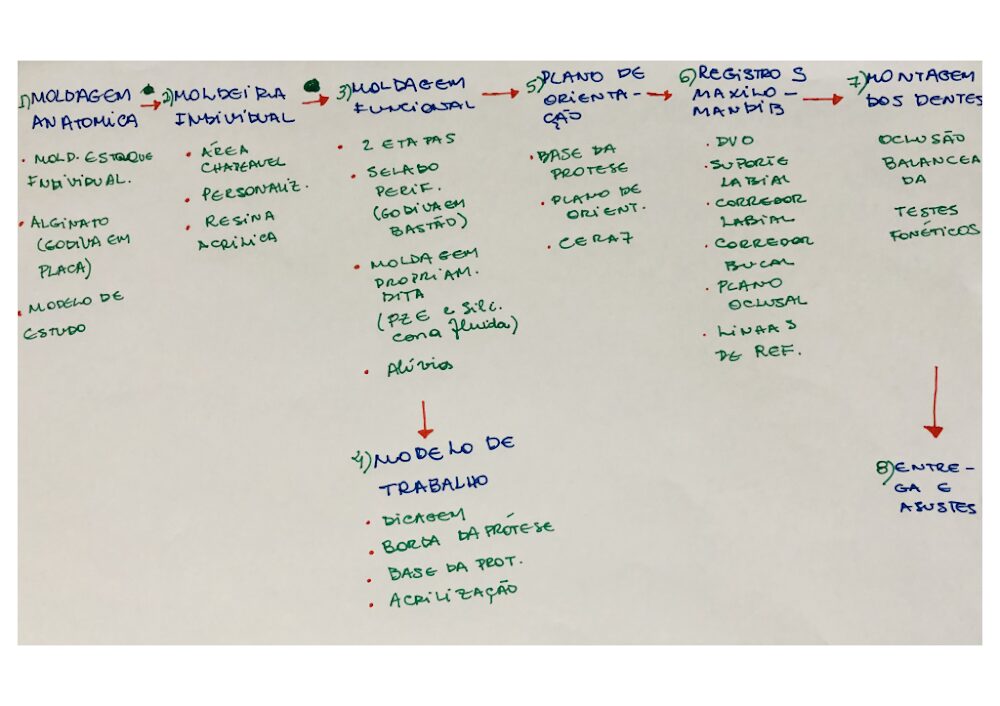 1) MOLDAGEM
ANATOMICA
• MOLD. ESTOQUE
INDIVIDUAL.
• ALGINATO
(GODIVA EM
PLACA)
• MODELO DE
ESTUDO
2) MOLDEIRA
INDIVIDUAL
• ÁREA
CHAPEAVEL
• PERSONALIZ.
• RESINA
ACRILICA
3) MOLDAGEM
FUNCIONAL
• 2 ETAPAS
• SELADO
PERIF.
(GODIVA EM
BASTÃO)
• MOLDAGEM
PROPRIAM.
DITA
(PZE e Silc.
cona fluida)
• Alívios
4) MODELO DE
TRABALHO
• DICAGEM
• BORDA DA PRÓTESE
• BASE DA PROT.
• ACRILIZAÇÃO
5) PLANO DE
ORIENTA-
ÇÃO
• BASE DA
PROTESE
• PLANO DE
ORIENT.
• CERA 7
6) REGISTROS
MAXILO-
MANDIB
• DVO
• SUPORTE
LABIAL
• CORREDOR
LABIAL
• CORREDOR
BUCAL
• PLANO
OCLUSAL
• LINHAS
DE REF.
7) MONTAGEM
DOS DENTES
OCLUSÃO
BALANCEA
DA
TESTES
FONÉTICOS
8) ENTRE-
GA E
AJUSTES